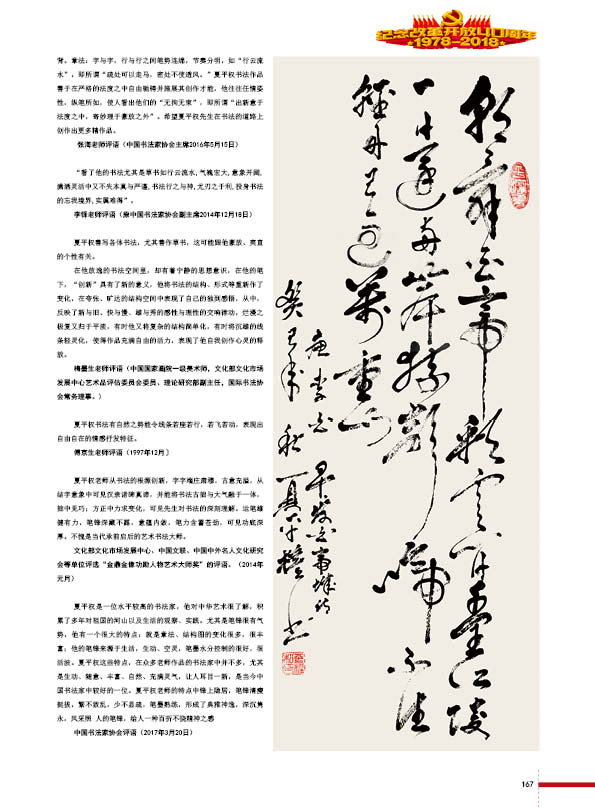 纪念改革开放40周年
1978-2018
骨。章法：字与字，行与行之间笔势连绵，节奏分明，如“行云流
水”。即所谓“疏处可以走马，密处不使透风。”夏平权书法作品
善于在严格的法度之中自由驰骋并施展其创作才能，他往往任情姿
性，纵笔所如，使人看出他们的“无拘无束”，即所谓“出新意于
法度之中，寄妙理于豪放之外”。希望夏平权先生在书法的道路上
创作出更多精作品。
张海老师评语（中国书法家协会主席2016年5月15日）
“看了他的书法尤其是草书如行云流水，气魄宏大，意象开阔，
满洒灵活中又不失本真与严谨，书法行之与神，尤刃之于利，投身书法
的忘我境界，实属难得”。
李铎老师评语（原中国书法家协会副主席2014年12月18日）
夏平权善写各体书法，尤其善作草书，这可能跟他豪放、爽直
的个性有关。
在他放逸的书法空间里，却有着宁静的思想意识，在他的笔
下，“创新”具有了新的意义，他将书法的结构、形式等重新作了
变化，在夸张、旷达的结构空间中表现了自己的独到感悟，从中，
反映了新与旧、快与慢、雄与秀的感性与理性的交响律动，烂漫之
极复又归于平淡，有时他又将复杂的结构简单化，有时将沉雄的线
条轻灵化，使得作品充满自由的活力，表现了他自我创作心灵的释
放。
梅墨生老师评语（中国国家画院一级美术师，文化部文化市场
发展中心艺术品评估委员会委员、理论研究部副主任，国际书法协
会常务理事。）
夏平权书法有自然之势能令线条若座若行，若飞若动，表现出
自由自在的情感抒发特征。
傅京生老师评语（1997年12月］
夏平权老师从书法的根源创新，字字端庄肃穆，古意充溢，从
结字意象中可见汉隶诸碑真谛，并能将书法古韵与大气融于一体，
拙中见巧；方正中力求变化，可见先生对书法的深刻理解，运笔雄
健有力，笔锋深藏不露，意蕴内敛，笔力含蓄苍劲，可见功底深
厚。不愧是当代承前启后的艺术书法大师。
文化部文化市场发展中心、中国文联、中国中外名人文化研究
会等单位评选“金鼎金像功勋人物艺术大师奖”的评语。（2014年
元月）
夏平权是一位水平较高的书法家，他对中华艺术很了解，积
累了多年对祖国的河山以及生活的观察、实践。尤其是笔锋很有气
势，他有一个很大的特点；就是章法、结构图的变化很多，很丰
富；他的笔锋来源于生活，生动、空灵，笔墨水分控制的很好，很
活泼。夏平权这些特点，在众多老师作品的书法家中并不多，尤其
是生动、随意、丰富、自然、充满灵气，让人耳目一新，是当今中
国书法家中较好的一位。夏平权老师的特点中锋上隐居，笔锋清瘦
挺拔，繁不散乱，少不显疏，笔墨熟练，形成了典雅神逸，深沉隽
永，风采照 人的笔锋，给人一种百折不挠精神之感
中国书法家协会评语（2017年3月20日）
朝辞白帝彩云间千里江陵
一日还两岸猿声啼不住
轻舟已过万重山
唐李白早发白帝城诗
癸巳年秋夏平权书
167